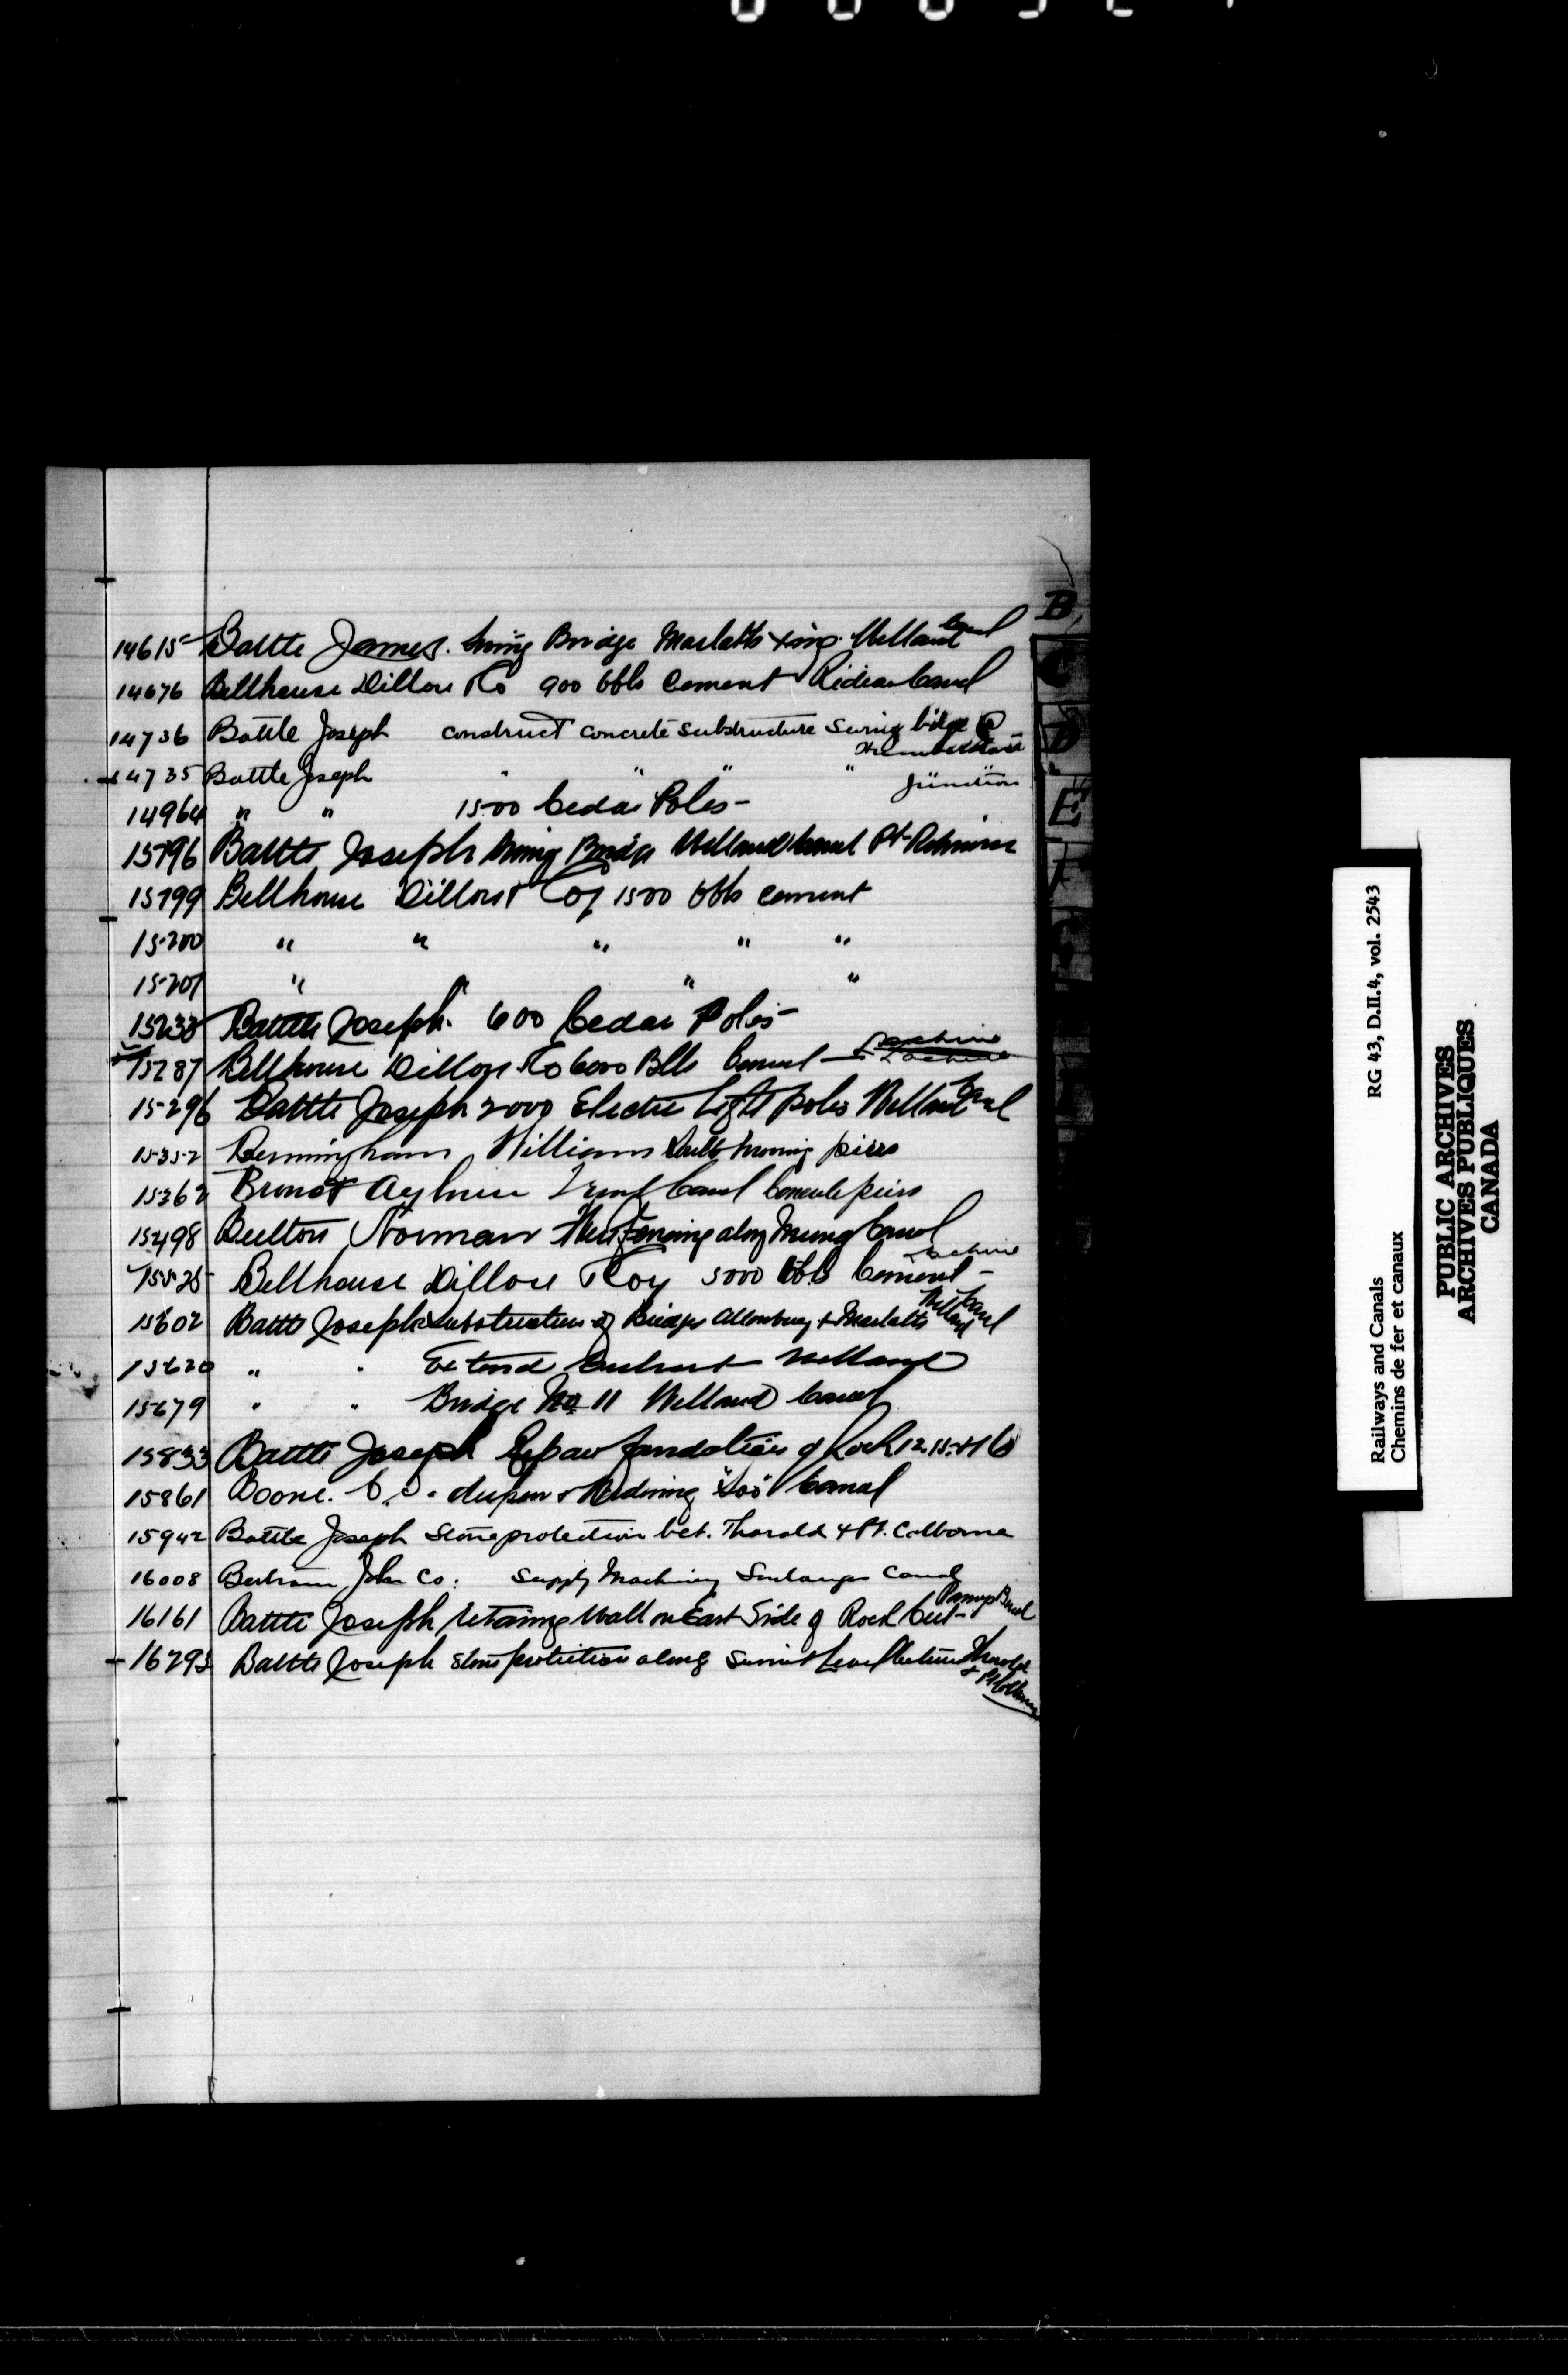 B
14615 Battle James. Swing Bridge Marlatts Xing. Welland Canal
14676 Bellhouse Dillon & Co 900 bbls Cement Rideau Canal
14736 Battle Joseph construct concrete substructure Swing bridge @ Humberstone
14735 Battle Joseph " " " " Junction
14964 " " 1500 Cedar Poles -
15196 Battle Joseph Swing Bridge Welland Canal Pt. Robinson
15199 Bellhouse Dillon & Coy 1500 bbls cement
15200 " " " " "
15201 " " " "
15233 Battle Joseph. 600 Cedar Poles -
15287 Bellhouse Dillon & Co 6000 Bbls Cement - Lachine
15296 Battle Joseph 2000 Electric Light poles Welland Canal
15352 Bermingham William piers
15362 Brunet Aylmer Trent Canal Concrete piers
15498 Beelton Norman fencing along Murray Canal
15525 Bellhouse Dillon & Coy 5000 bbls Cement - Lachine
15602 Battle Joseph substructure of Bridges Allanburg & Marlatts Welland Canal
15620 " " Extend Culvert Welland
15679 " " Bridge No 11 Welland Canal
15833 Battle Joseph Repair foundations of Lock 12, 15 & 16
15861 Boone. C. S. deepen & Widening "Soo" Canal
15942 Battle Joseph Stone protection bet. Thorold & Pt. Colborne
16008 Bertram John Co: Supply Machinery Soulanges Canal
16161 Battle Joseph retaining Wall on East Side of Rock Cut -
16293 Battle Joseph stone protection along Summit Level between Thorold & Pt Colborne
C
D
E
F
Railways and Canals RG 43, D.II.4, vol. 2543
Chemins de fer et canaux
PUBLIC ARCHIVES
ARCHIVES PUBLIQUES
CANADA